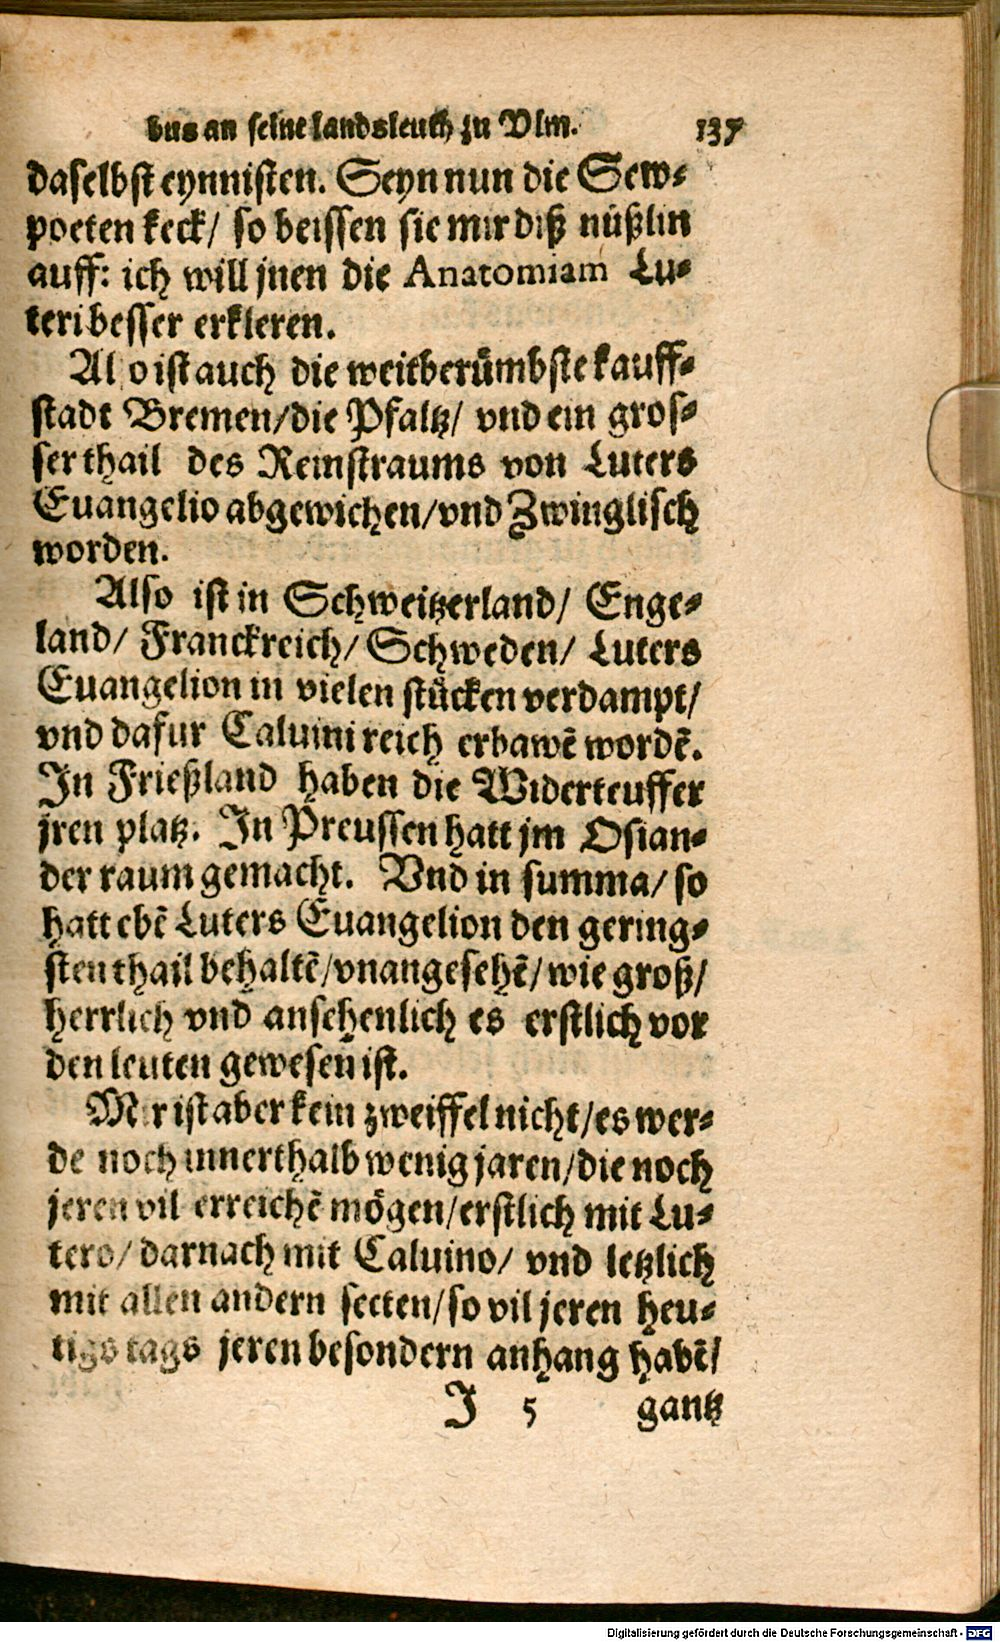 bus an seine landsleuth zu Vlm. 137
daselbst eynnisten. Seyn nun die Sew⸗
poeten keck/ so beissen sie mir diß nüßlin
auff: ich will jnen die Anatomiam Lu⸗
teri besser erkleren.
Also ist auch die weitberümbste kauff⸗
stadt Bremen/die Pfaltz/ vnd ein gros⸗
ser thail des Reinstraums von Luters
Euangelio abgewichen/vnd Zwinglisch
worden.
Also ist in Schweitzerland/ Enge⸗
land/ Franckreich/ Schweden/ Luters
Euangelion in vielen stücken verdampt/
vnd dafur Caluini reich erbawē wordē.
In Frießland haben die Widerteuffer
jren platz. In Preussen hatt jm Osian⸗
der raum gemacht. Vnd in summa/ so
hatt ebē Luters Euangelion den gering⸗
sten thail behaltē/vnangesehē/wie groß/
herrlich vnd ansehenlich es erstlich vor
den leuten gewesen ist.
Mir ist aber kein zweiffel nicht/es wer⸗
de noch innerthalb wenig jaren/die noch
jeren vil erreichē mögen/erstlich mit Lu⸗
tero/ darnach mit Caluino/ vnd letzlich
mit allen andern secten/so vil jeren heu⸗
tigs tags jeren besondern anhang habē/
J 5 gantz
Digitalisierung gefördert durch die Deutsche Forschungsgemeinschaft - DFG